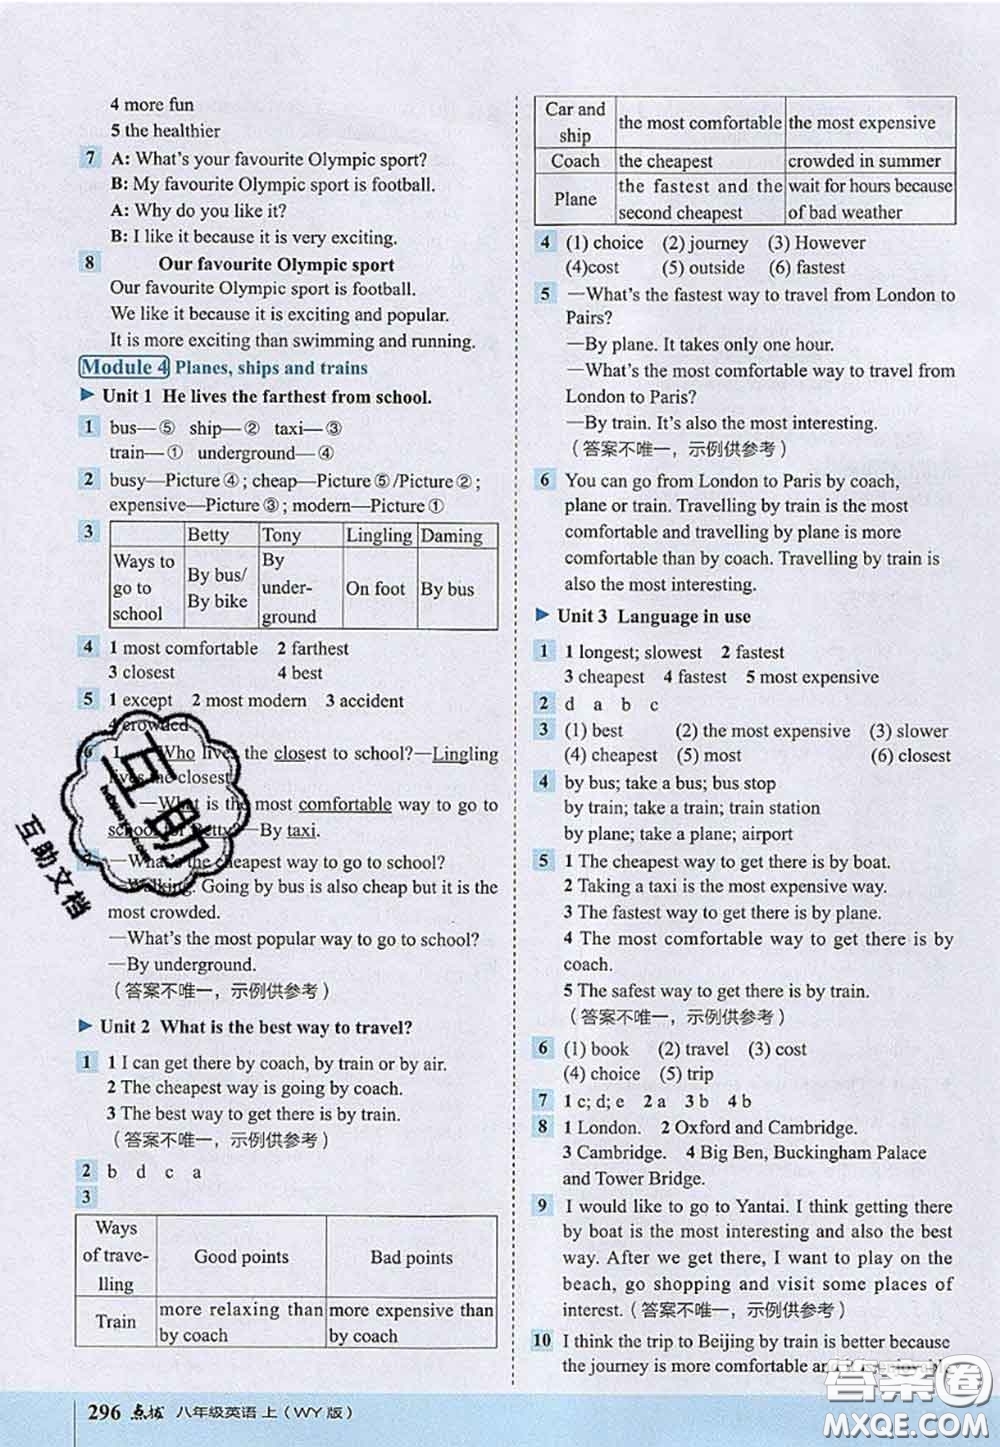 4 more fun
5 the healthier
7 A: What's your favourite Olympic sport?
B: My favourite Olympic sport is football.
A: Why do you like it?
B: I like it because it is very exciting.
8 Our favourite Olympic sport
Our favourite Olympic sport is football.
We like it because it is exciting and popular.
It is more exciting than swimming and running.
Module 4 Planes, ships and trains
Unit 1 He lives the farthest from school.
1 bus—⑤ ship—② taxi—③
train—① underground—④
2 busy—Picture ④; cheap—Picture ⑤/Picture ②;
expensive—Picture ③; modern—Picture ①
3 Betty Tony Lingling Daming
Ways to go to school By bus/ By bike By under-ground On foot By bus
4 1 most comfortable 2 farthest
3 closest 4 best
5 1 except 2 most modern 3 accident
4 crowded
6 1 —Who lives the closest to school?—Lingling
lives the closest.
—What is the most comfortable way to go to
school for Betty?—By taxi.
7 —What's the cheapest way to go to school?
—Walking. Going by bus is also cheap but it is the
most crowded.
—What's the most popular way to go to school?
—By underground.
（答案不唯一，示例供参考）
Unit 2 What is the best way to travel?
1 1 I can get there by coach, by train or by air.
2 The cheapest way is going by coach.
3 The best way to get there is by train.
（答案不唯一，示例供参考）
2 b d c a
3
Ways of trave-lling Good points Bad points
Train more relaxing than by coach more expensive than by coach
Car and ship the most comfortable the most expensive
Coach the cheapest crowded in summer
Plane the fastest and the second cheapest wait for hours because of bad weather
4 (1) choice (2) journey (3) However
(4)cost (5) outside (6) fastest
5 —What's the fastest way to travel from London to
Pairs?
—By plane. It takes only one hour.
—What's the most comfortable way to travel from
London to Paris?
—By train. It's also the most interesting.
（答案不唯一，示例供参考）
6 You can go from London to Paris by coach,
plane or train. Travelling by train is the most
comfortable and travelling by plane is more
comfortable than by coach. Travelling by train is
also the most interesting.
Unit 3 Language in use
1 1 longest; slowest 2 fastest
3 cheapest 4 fastest 5 most expensive
2 d a b c
3 (1) best (2) the most expensive (3) slower
(4) cheapest (5) most (6) closest
4 by bus; take a bus; bus stop
by train; take a train; train station
by plane; take a plane; airport
5 1 The cheapest way to get there is by boat.
2 Taking a taxi is the most expensive way.
3 The fastest way to get there is by plane.
4 The most comfortable way to get there is by
coach.
5 The safest way to get there is by train.
（答案不唯一，示例供参考）
6 (1) book (2) travel (3) cost
(4) choice (5) trip
7 1 c; d; e 2 a 3 b 4 b
8 1 London. 2 Oxford and Cambridge.
3 Cambridge. 4 Big Ben, Buckingham Palace
and Tower Bridge.
9 I would like to go to Yantai. I think getting there
by boat is the most interesting and also the best
way. After we get there, I want to play on the
beach, go shopping and visit some places of
interest.（答案不唯一，示例供参考）
10 I think the trip to Beijing by train is better because
the journey is more comfortable and
296 点拨 八年级英语 上（WY 版）
互助
互助文档
答案圈
MXQE.COM